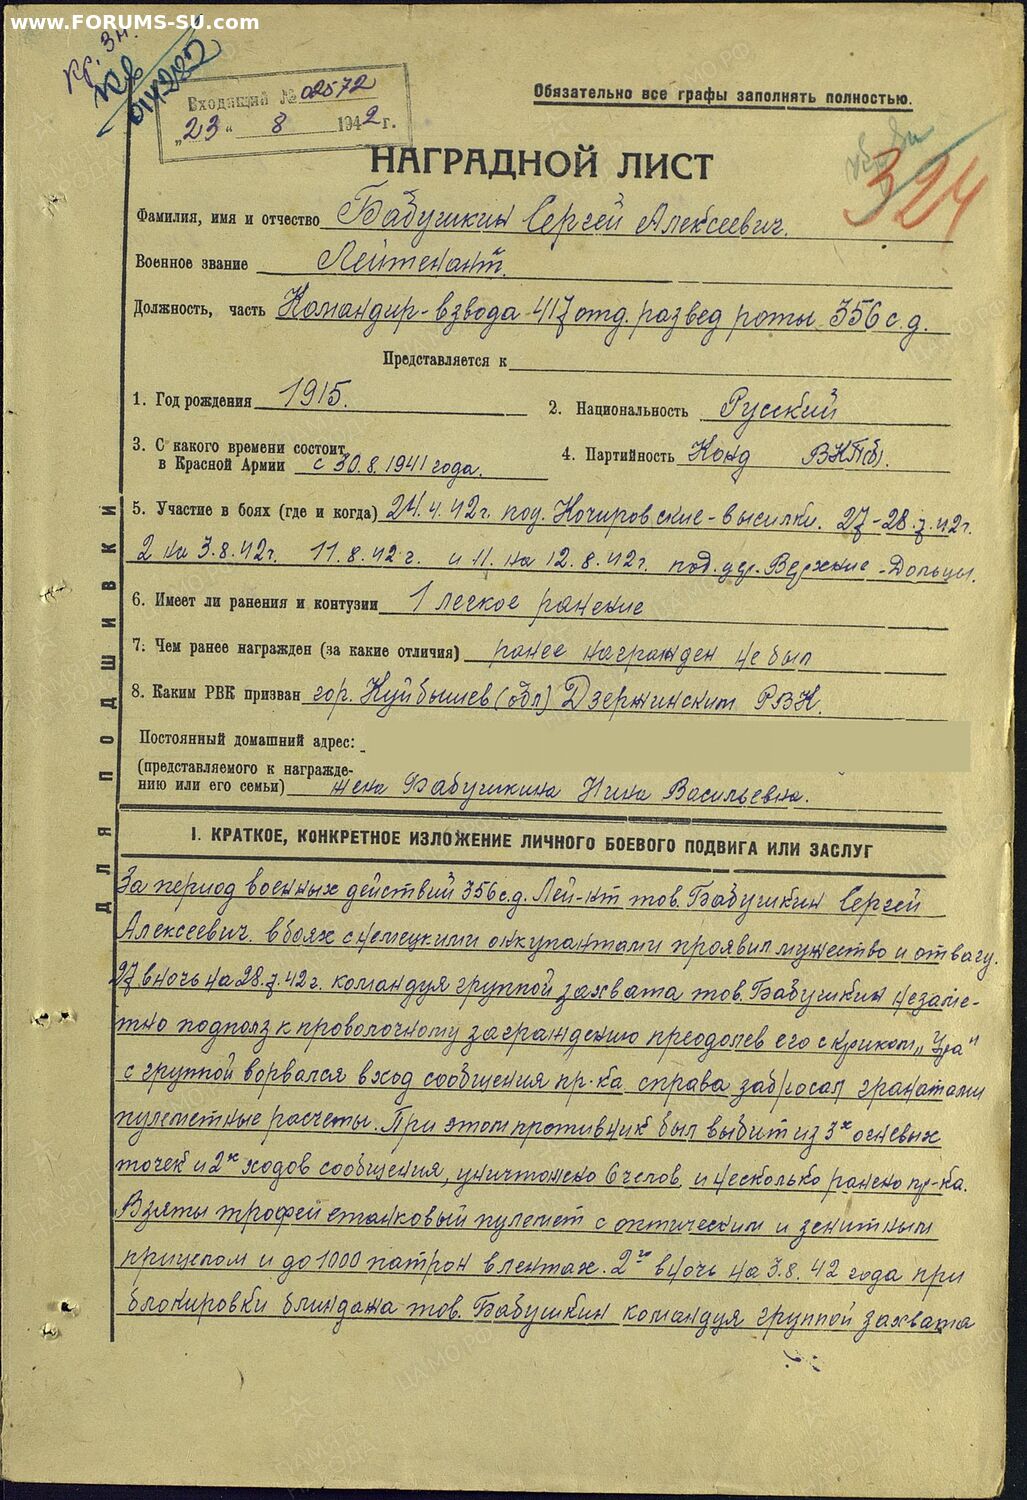 www.FORUMS-SU.com
Кр. Зн.
Входящий № 02572
„23“ 8 1942 г.
Обязательно все графы заполнять полностью.
324
НАГРАДНОЙ ЛИСТ
Фамилия, имя и отчество Бабушкин Сергей Алексеевич.
Военное звание Лейтенант.
Должность, часть Командир-взвода 417 отд. развед роты 356 с.д.
Представляется к
1. Год рождения 1915. 2. Национальность Русский
3. С какого времени состоит
в Красной Армии с 30.8.1941 года. 4. Партийность Конд ВКП(б).
5. Участие в боях (где и когда) 24.4.42г. под. Кочировские-высилки. 27-28.7.42г.
2 на 3.8.42г. 11.8.42г. и 11. на 12.8.42г. под. дер. Верхние-Дольцы.
6. Имеет ли ранения и контузии 1 легкое ранение
7. Чем ранее награжден (за какие отличия) ранее награжден не был
8. Каким РВК призван гор. Куйбышев (обл) Дзержинским РВК.
Постоянный домашний адрес:
(представляемого к награжде-
нию или его семьи) жена Бабушкина Нина Васильевна.
ДЛЯ ПОДШИВКИ
I. КРАТКОЕ, КОНКРЕТНОЕ ИЗЛОЖЕНИЕ ЛИЧНОГО БОЕВОГО ПОДВИГА ИЛИ ЗАСЛУГ
За период военных действий 356 с.д. Лей-нт тов. Бабушкин Сергей
Алексеевич. в боях с немецкими оккупантами проявил мужество и отвагу.
27 в ночь на 28.7.42г. командуя группой захвата тов. Бабушкин незаме-
тно подполз к проволочному заграждению преодолев его с криком „Ура“
с группой ворвался в ход сообщения пр-ка справа, забросал гранатами
пулеметные расчеты. При этом противник был выбит из 3х огневых
точек и 2х ходов сообщения, уничтожено 6 челов. и несколько ранено пр-ка.
Взяты трофеи станковый пулемет с оптическим и зенитным
прицелом и до 1000 патрон в лентах. 2го в ночь на 3.8.42 года при
блокировки блиндажа тов. Бабушкин командуя группой захвата